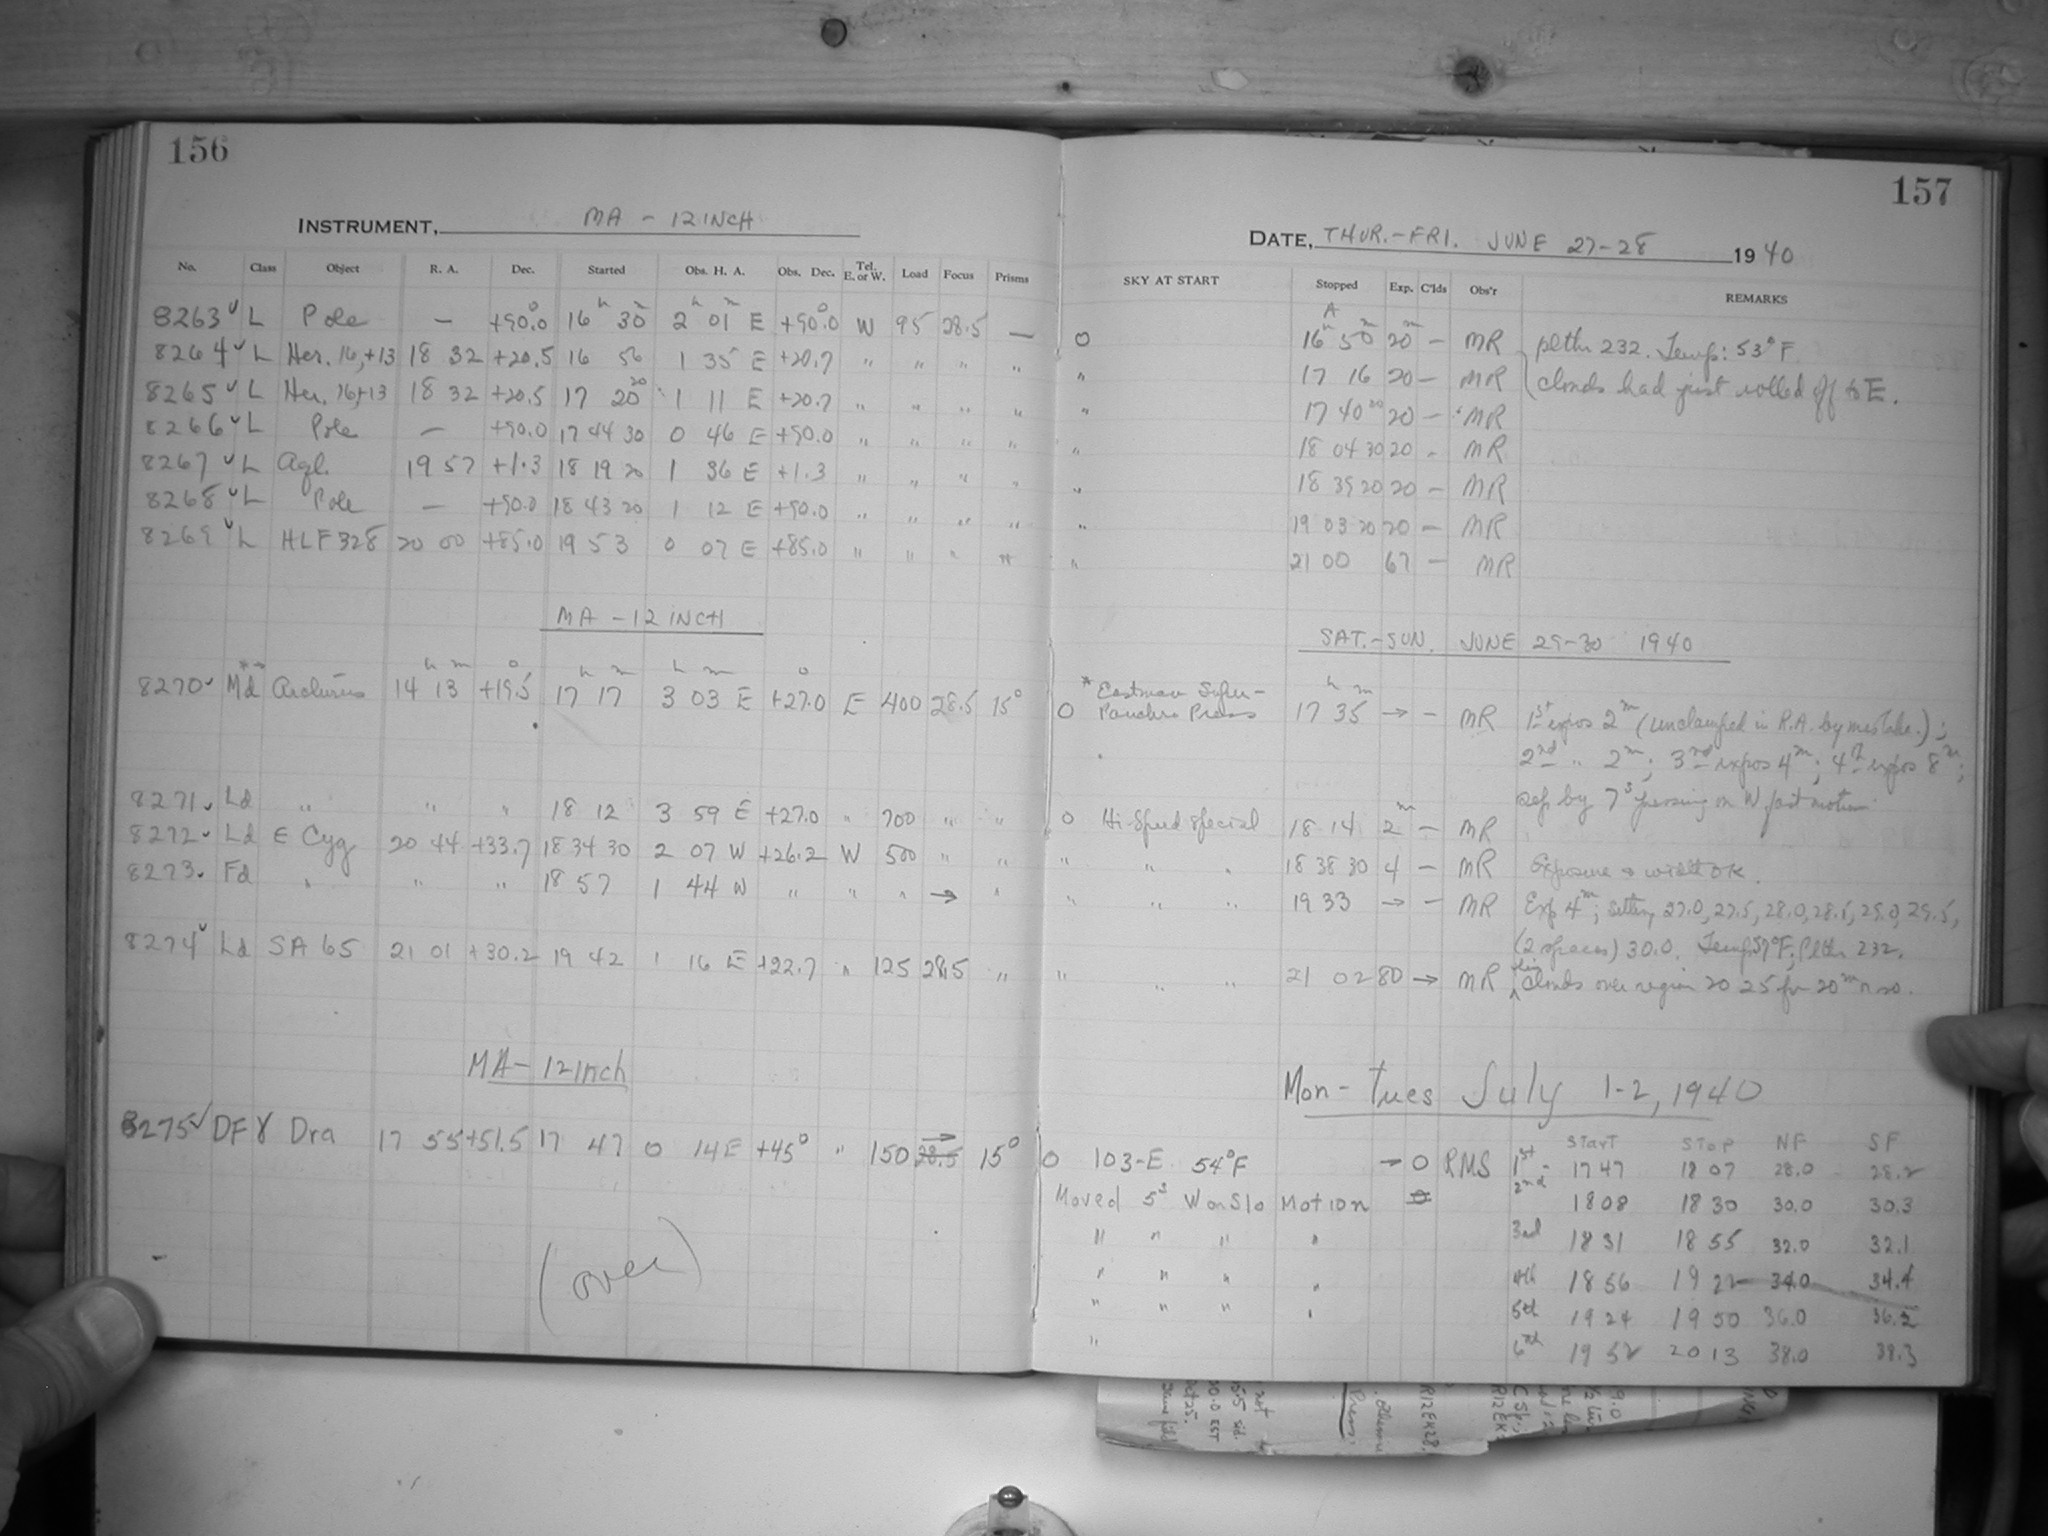 156
INSTRUMENT, MA - 12 INCH
No. Class Object R. A. Dec. Started Obs. H. A. Obs. Dec. Tel. E. or W. Load Focus Prisms
8263 ✓ L Pole — +90.0° 16h 30m 2h 01m E +90.0° W 95 28.5 —
8264 ✓ L Her. 16,+13 18 32 +20.5 16 56 1 35 E +20.7 " " " "
8265 ✓ L Her. 16,+13 18 32 +20.5 17 20 20 1 11 E +20.7 " " " "
8266 ✓ L Pole — +90.0 17 44 30 0 46 E +90.0 " " " "
8267 ✓ L Aql. 19 57 +1.3 18 19 20 1 36 E +1.3 " " " "
8268 ✓ L Pole — +90.0 18 43 20 1 12 E +90.0 " " " "
8269 ✓ L HLF 328 20 00 +85.0 19 53 0 07 E +85.0 " " " "
MA - 12 INCH
8270 ✓ Md ** Arcturus 14h 13m +19.5° 17h 17m 3h 03m E +27.0° E 400 28.5 15°
8271 ✓ Ld " " " 18 12 3 59 E +27.0 " 700 " "
8272 ✓ Ld E Cyg 20 44 +33.7 18 34 30 2 07 W +26.2 W 500 " "
8273 ✓ Fd " " " 18 57 1 44 W " " " → "
8274 ✓ Ld SA 65 21 01 +30.2 19 42 1 16 E +22.7 " 125 28.5 "
MA - 12 Inch
8275 ✓ DF γ Dra 17 55 +51.5 17 47 0 14 E +45° " 150 → 28.5 15°
(over)
157
DATE, THUR.-FRI. JUNE 27-28 1940
SKY AT START Stopped Exp. C'lds Obs'r REMARKS
A
0 16h 50m 20m — MR pltho 232. Temp: 53°F
" 17 16 20 — MR clouds had just rolled off to E.
" 17 40 20 20 — MR
" 18 04 30 20 - MR
" 18 39 20 20 — MR
" 19 03 20 20 — MR
" 21 00 67 — MR
SAT.-SUN. JUNE 29-30 1940
* Eastman Super-
0 Panchro Press 17h 35m → - MR 1st expos 2m (unclamped in R.A. by mistake.);
2nd " 2m; 3rd expos 4m; 4th expos 8m;
sep by 7s pressing on W fast motion.
0 Hi-Speed special 18 14 2m — MR
" " " 18 38 30 4 — MR Exposure & width OK.
" " " 19 33 → — MR Exp 4m; setting 27.0, 27.5, 28.0, 28.5, 29.0, 29.5,
(2 spaces) 30.0. Temp 57°F; Pltho 232.
" " " 21 02 80 → MR clouds over region 20 25 for 20m or so.
Mon - Tues July 1-2, 1940
Start Stop NF SF
0 103-E 54°F → 0 RMS 1st - 17 47 18 07 28.0 28.2
Moved 5s W on Slo Motion 2nd 18 08 18 30 30.0 30.3
" " " " 3rd 18 31 18 55 32.0 32.1
" " " " 4th 18 56 19 22 34.0 34.4
" " " " 5th 19 24 19 50 36.0 36.2
" 6th 19 52 20 13 38.0 38.3